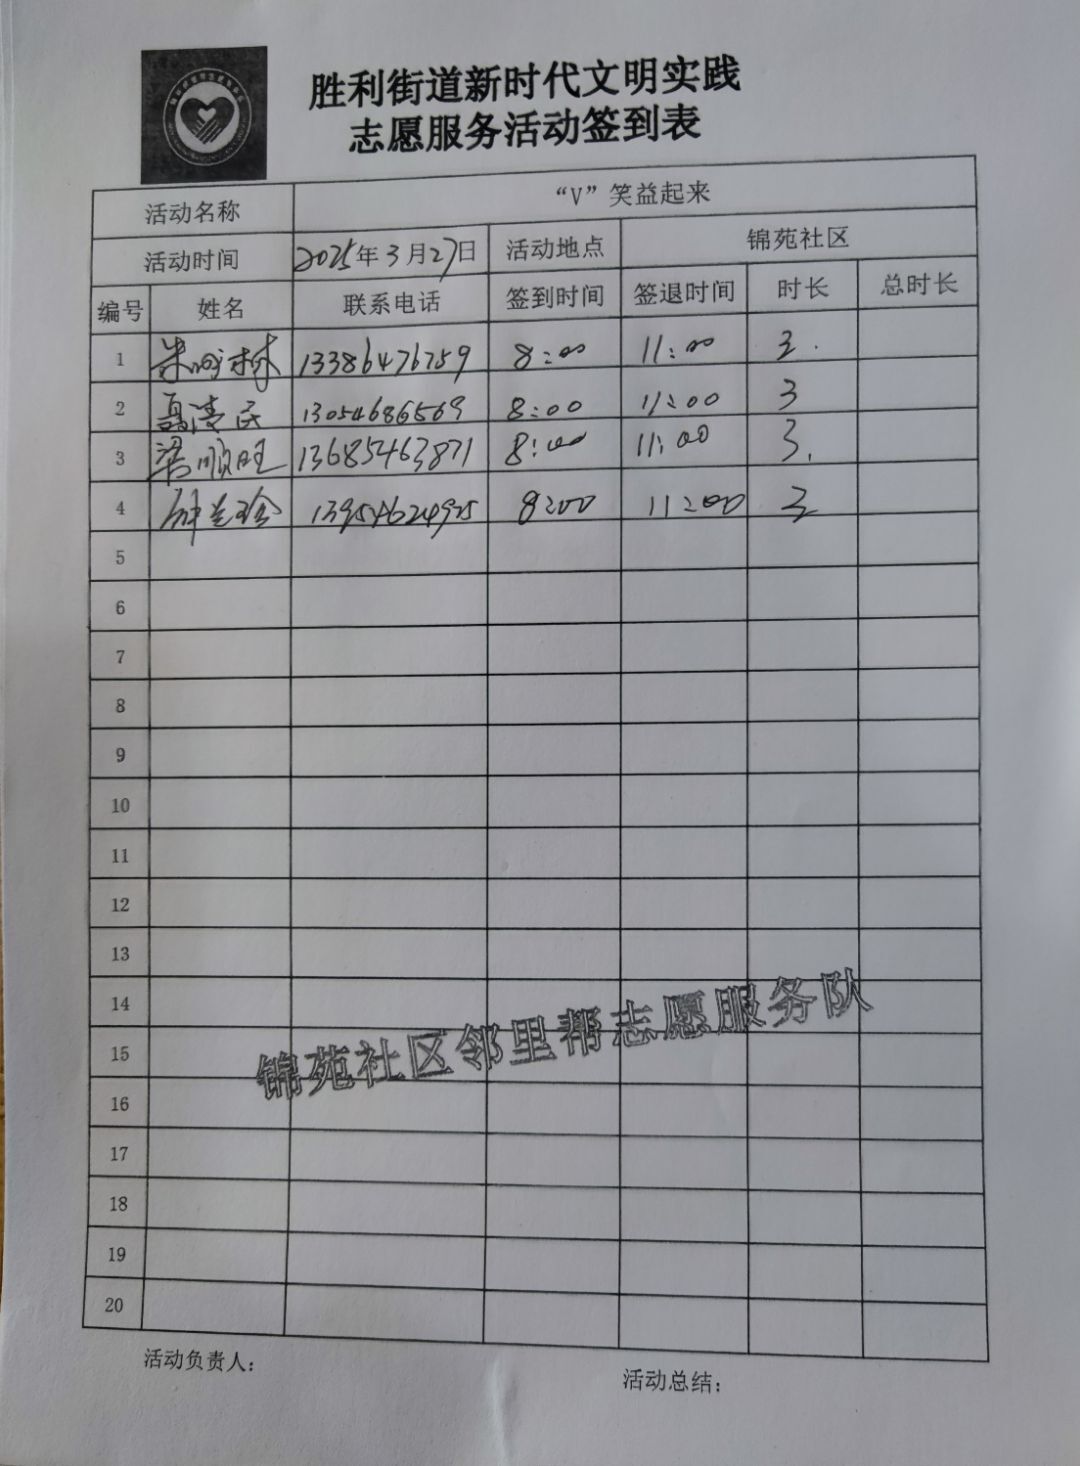 胜利街道新时代文明实践
志愿服务活动签到表
活动名称 “V”笑益起来
活动时间 2025年3月27日 活动地点 锦苑社区
编号 姓名 联系电话 签到时间 签退时间 时长 总时长
1 朱 林 13386476759 8:00 11:00 3.
2 聂涛民 13054686569 8:00 11:00 3
3 梁顺旺 13685463871 8:00 11:00 3.
4 13954624925 8:00 11:00 3
5
6
7
8
9
10
11
12
13
14
锦苑社区邻里帮志愿服务队
15
16
17
18
19
20
活动负责人：
活动总结：